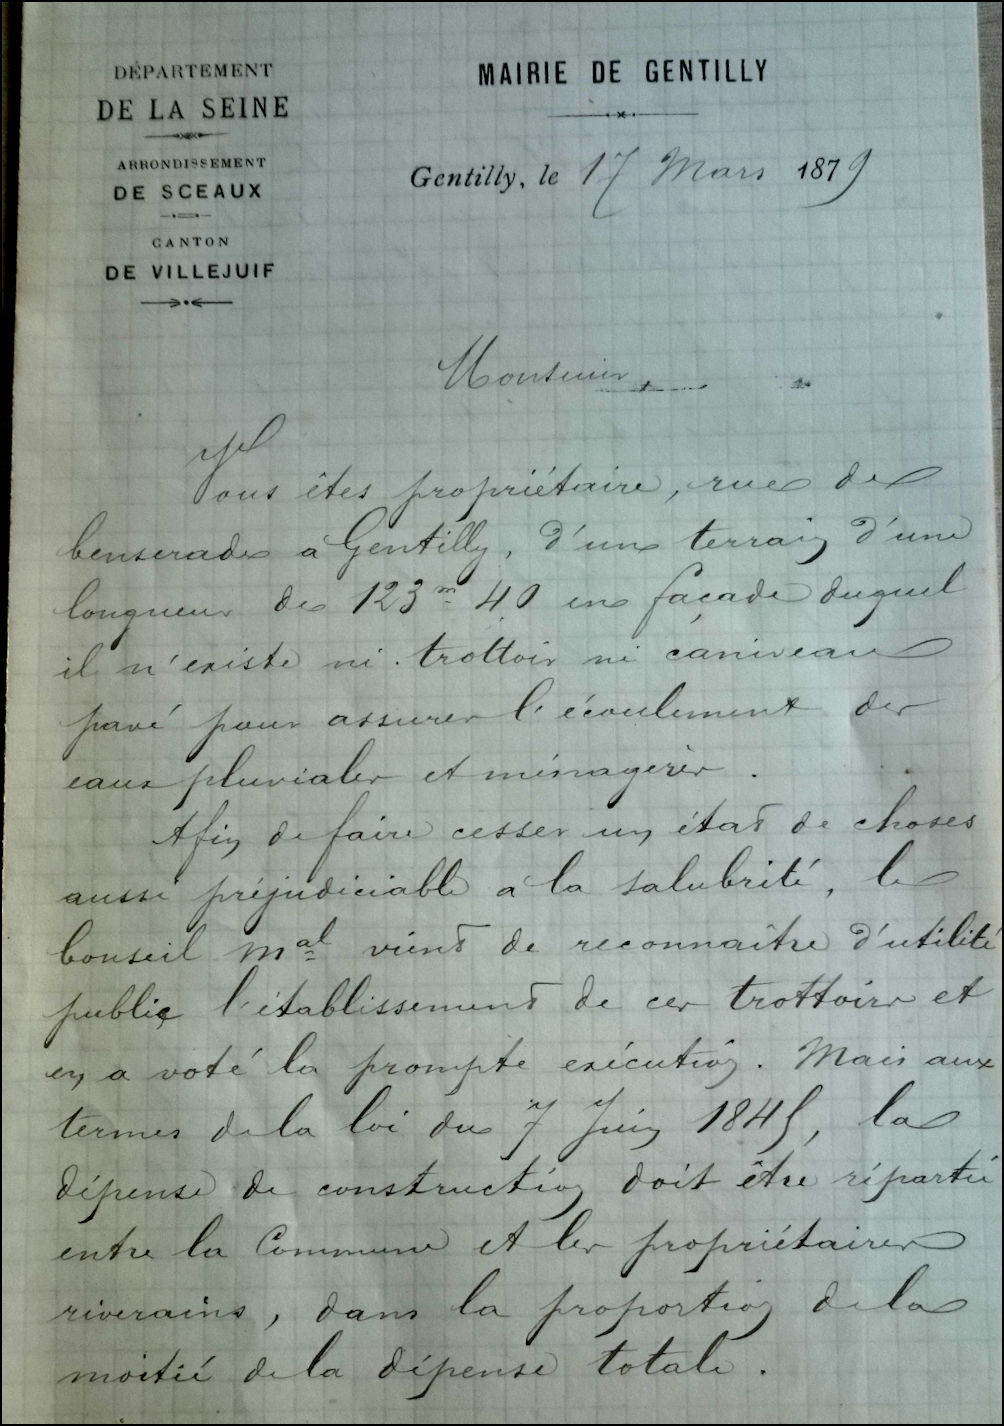 DÉPARTEMENT
DE LA SEINE
ARRONDISSEMENT
DE SCEAUX
CANTON
DE VILLEJUIF
MAIRIE DE GENTILLY
Gentilly, le 17 Mars 1879
Monsieur,
Vous êtes propriétaire, rue de
benserade à Gentilly, d'un terrain d'une
longueur de 123m 40 en façade duquel
il n'existe ni trottoir ni caniveau
pavé pour assurer l'écoulement des
eaux pluviales et ménagères.
Afin de faire cesser un état de choses
aussi préjudiciable à la salubrité, le
Conseil Mal vient de reconnaître d'utilité
public l'établissement de ces trottoirs et
en a voté la prompte exécution. Mais aux
termes de la loi du 7 Juin 1845, la
dépense de construction doit être répartie
entre la Commune et les propriétaires
riverains, dans la proportion de la
moitié de la dépense totale.